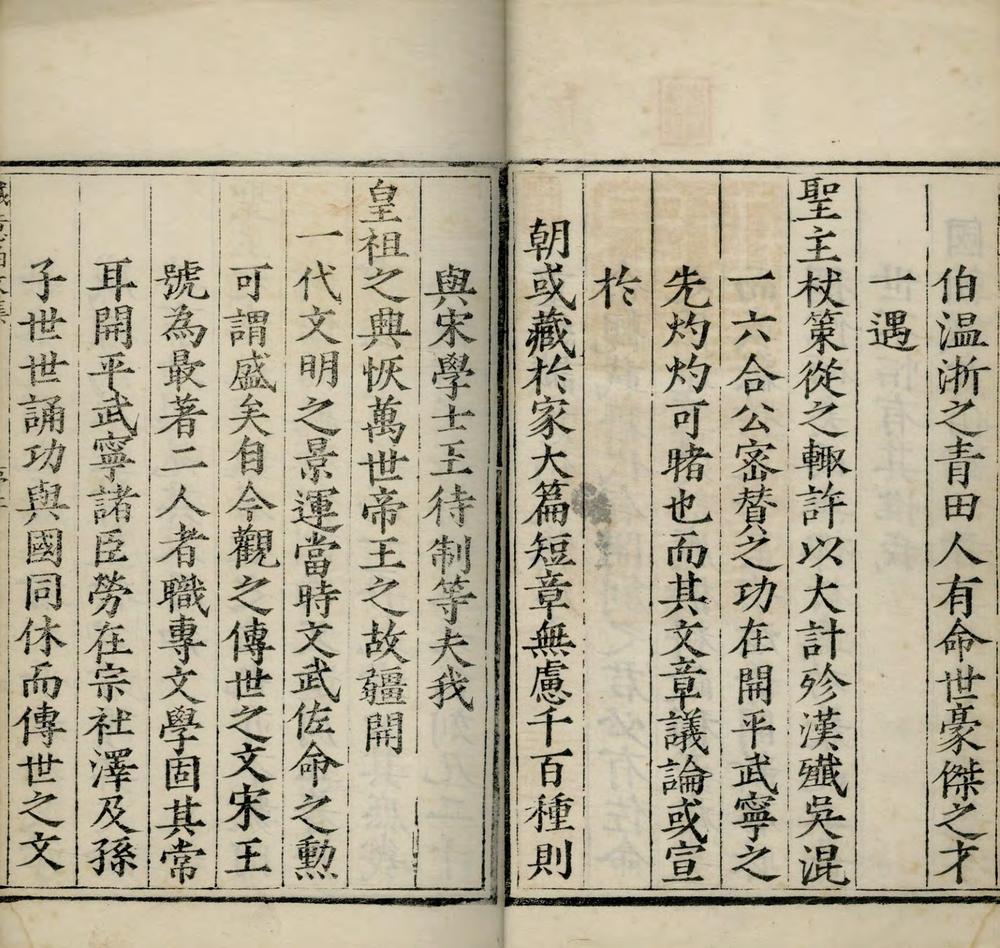 伯温浙之青田人有命世豪傑之才
一遇
聖主杖策從之輙許以大計殄漢殲吳混
一六合公密賛之功在開平武寧之
先灼灼可睹也而其文章議論或宣
於
朝或藏於家大篇短章無慮千百種則
與宋學士王待制等夫我
皇祖之典恢萬世帝王之故疆開
一代文明之景運當時文武佐命之勲
可謂盛矣自今觀之傳世之文宋王
號為最著二人者職專文學固其常
耳開平武寧諸臣勞在宗社澤及孫
子世世誦功與國同休而傳世之文